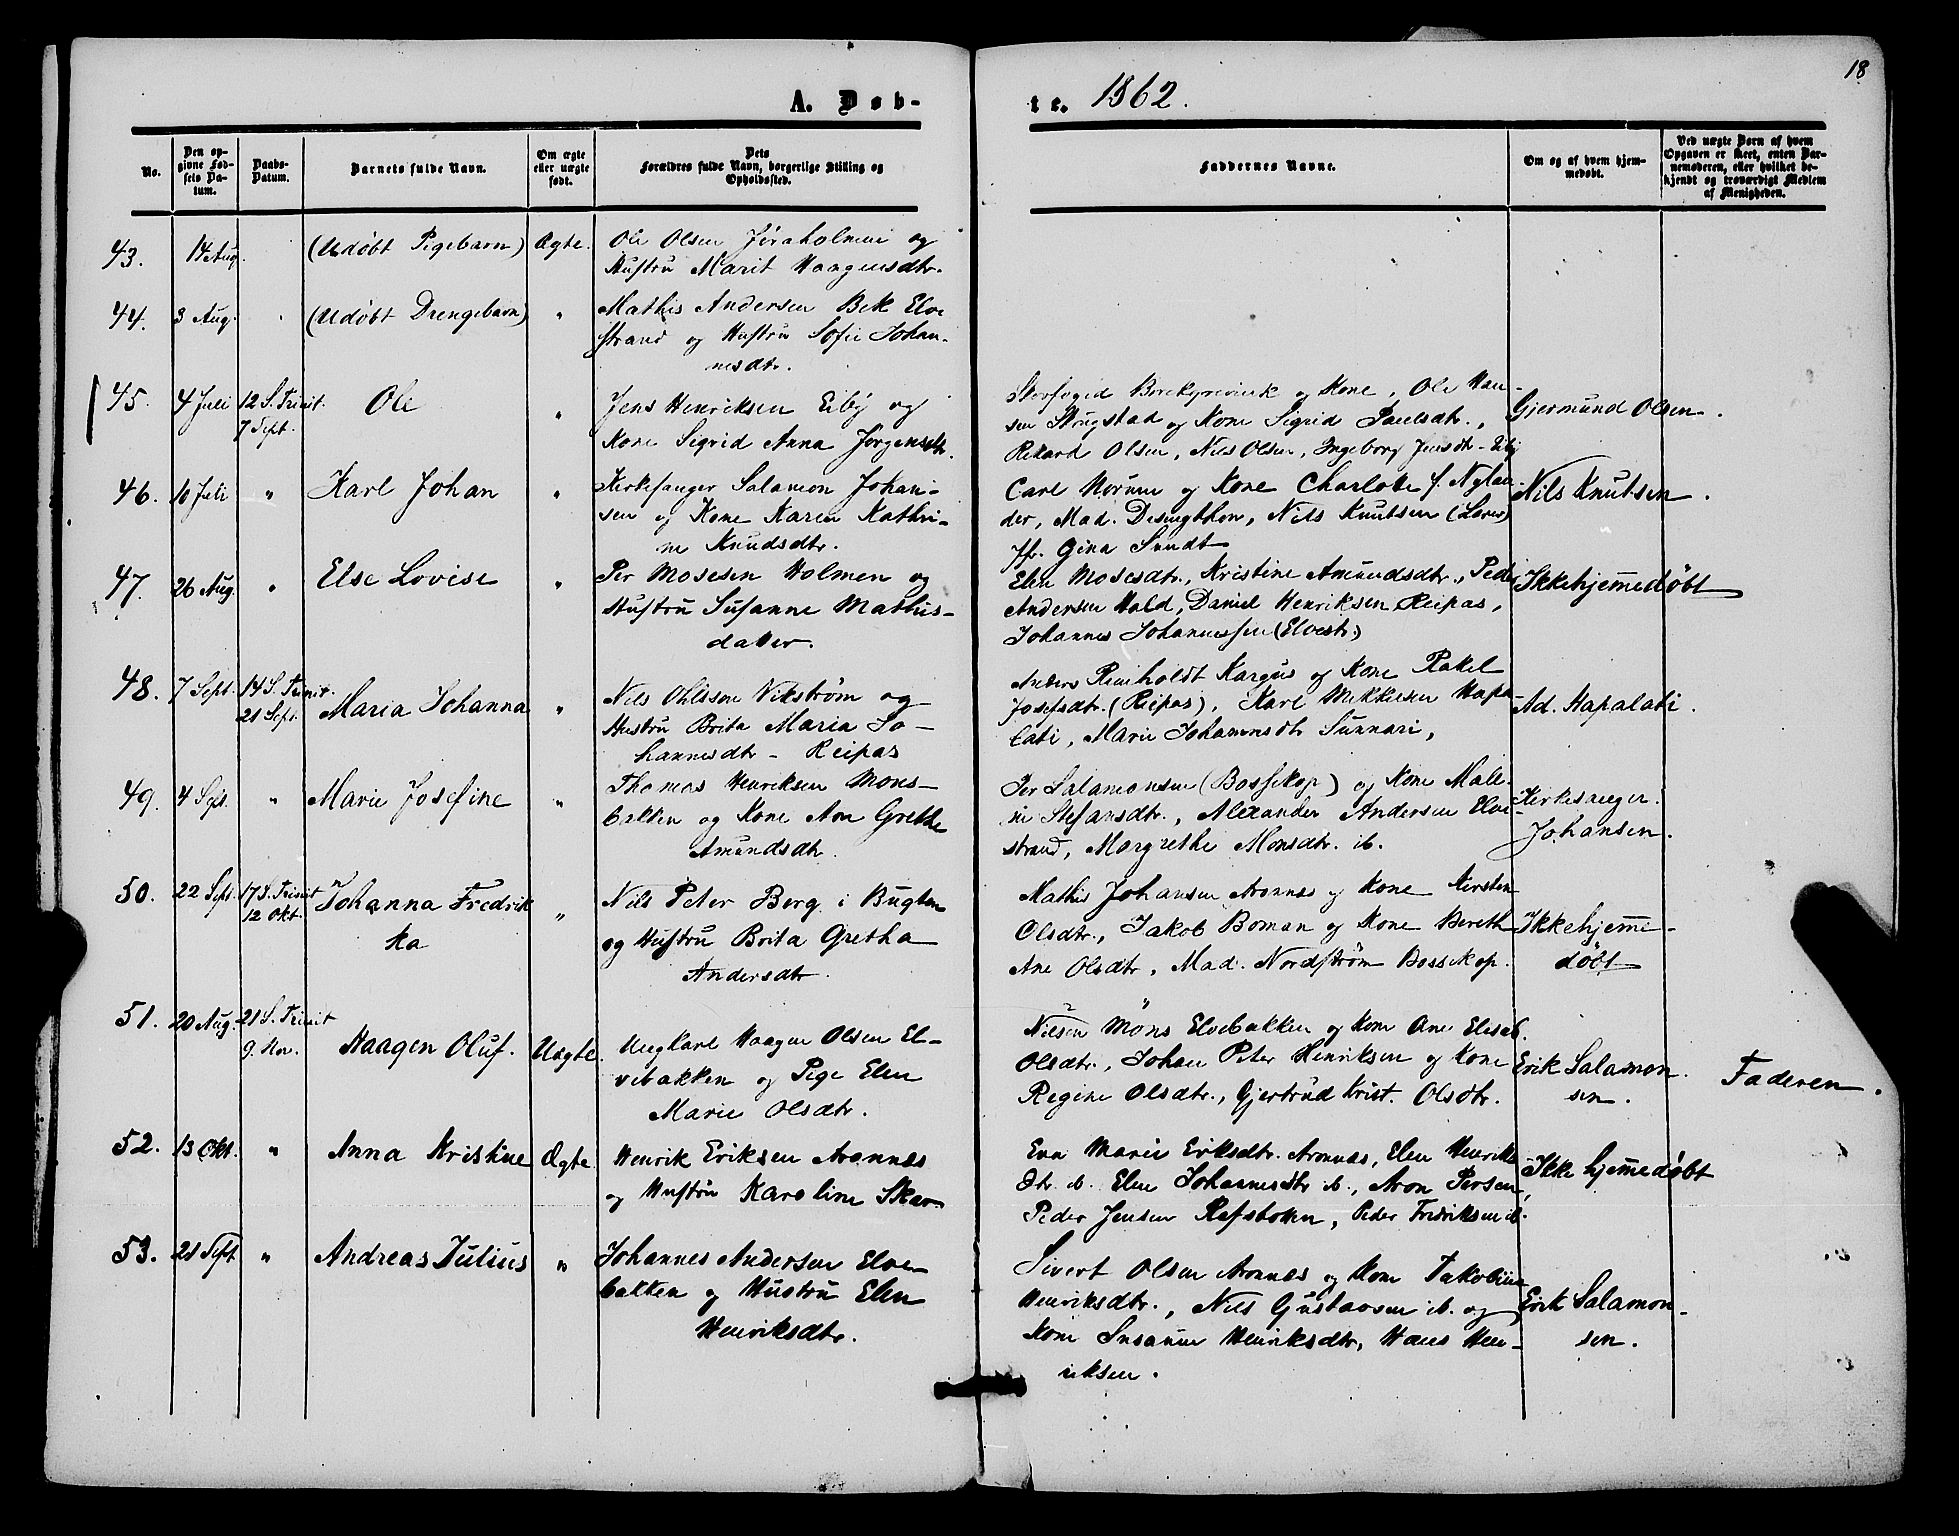 18
A. Døb-
te. 1862.
No.
Den op-
givne Fød-
sels Da-
tum.
Daabs-
Datum.
Barnets fulde Navn.
Om ægte
eller uægte
født.
Dets
Forældres fulde Navn, borgerlige Stilling og
Opholdssted.
Faddernes Navne.
Om og af hvem hjem-
medøbt.
Ved uægte Børn af hvem
Opgaven er skeet, enten Bar-
nemoderen, eller hvilket be-
kjendt og troværdigt Medlem
af Menigheden.
43. 14 Aug. (Udøbt Pigebarn) Ægte. Ole Olsen Jøraholmen og
Hustru Marit Haagensdtr.
44. 3 Aug. (Udøbt Drengebarn) " Mathis Andersen Bek Elve
strand og Hustru Sofie Johan-
nesdtr.
45. 4 Juli 12 S. Trinit. 7 Sept. Ole " Jens Henriksen Eiby og
Kone Sigrid Anna Jørgensdtr.
Skovfoged og Kone, Ole Han-
sen Skugstad og Kone Sigrid Paulsdtr.,
Rikard Olsen, Nils Olsen, Ingeborg Jensdtr - Eiby
Gjermund Olsen.
46. 10 Juli " Karl Johan " Kirkesanger Salamon Johan-
sen og Kone Karen Kathri-
ne Knudsdtr.
Carl Norum og Kone Charlotte f. Nylan-
der, Mad. Nils Knutsen (Lærer)
Jfr. Gina Sundt
Nils Knutsen.
47. 26 Aug. " Else Lovise " Per Mosesen Holmen og
Hustru Susanne Mathis-
datter.
Elen Mosesdtr., Kristine Amundsdtr., Peder
Andersen Hald, Daniel Henriksen Reipas,
Johannes Johannessen (Elvestr.)
Ikkehjemmedøbt
48. 7 Sept. 14 S. Trinit. 21 Sept. Maria Johanna " Nils Ohlsson Vikstrøm og
Hustru Brita Maria Jo-
hannesdtr - Reipas
Anders Reinholdt Kargus og Kone Rakel
Josefsdtr. (Reipas), Karl Mikkelsen Hapa-
lati, Marie Johannesdtr Sunnari,
Ad. Hapalati.
49. 4 Sept. " Marie Josefine " Thomas Henriksen Mons-
bakken og Kone Ane Grethe
Amundsdtr.
Per Salamonsen (Bossekop) og Kone Male-
ne Stefansdtr., Alexander Andersen Elve-
strand, Margrethe Monsdtr. ib.
Kirkesanger
Johansen.
50. 22 Sept. 17 S. Trinit 12 Okt. Johanna Fredrik
ka " Nils Peter Berg i Bugten
og Hustru Brita Gretha
Andersdtr.
Mathis Johansen Aronnes og Kone Kirsten
Olsdtr., Jakob Boman og Kone Bereth
Ane Olsdtr, Mad. Nordstrøm Bossekop.
Ikkehjemme-
døbt
51. 20 Aug. 21 S. Trinit 9. Nov. Haagen Oluf. Uægte. Ungkarl Haagen Olsen El-
vebakken og Pige Elen
Marie Olsdtr.
Nilsen Møns Elvebakken og Kone Ane Elisab.
Olsdtr., Johan Peter Henriksen og Kone
Regine Olsdtr., Gjertrud Krist. Olsdtr.
Erik Salamon
sen.
Faderen.
52. 13 Okt. " Anna Kristine Ægte Henrik Eriksen Aronnæs
og Hustru Karoline Skar.
Eva Marie Eriksdtr. Aronnæs, Elen Henriks
dtr. ib. Elen Johannesdtr ib., Aron Persen,
Peder Jensen Rafsbotn, Peder Fredriksen ib.
Ikke hjemmedøbt
53. 21 Sept " Andreas Julius " Johannes Andersen Elve-
bakken og Hustru Elen
Henriksdtr.
Sivert Olsen Aronnæs og Kone Jakobine
Henriksdtr., Nils Gustavsen ib. og
Kone Susanne Henriksdtr, Hans Hen-
riksen.
Erik Salamon-
sen.